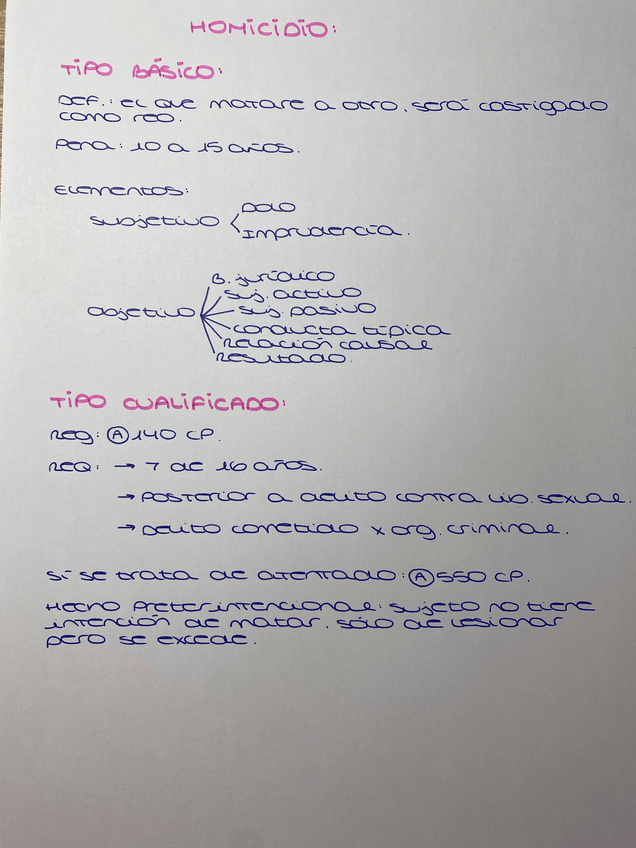 HOMICIDIO:
TIPO BÁSICO:
DEF.: EL QUE MATARE A OTRO, SERÁ CASTIGADO
COMO REO.
PENA: 10 A 15 AÑOS.
ELEMENTOS:
SUBJETIVO
DOLO
IMPRUDENCIA.
OBJETIVO
B. JURÍDICO
SUJ. ACTIVO
SUJ. PASIVO
CONDUCTA TÍPICA
RELACIÓN CAUSAL
RESULTADO.
TIPO CUALIFICADO:
REG: Ⓐ 140 CP.
REQ: → 7 DE 16 AÑOS.
→ POSTERIOR A DELITO CONTRA LIB. SEXUAL.
→ DELITO COMETIDO X ORG. CRIMINAL.
SI SE TRATA DE ATENTADO: Ⓐ 550 CP.
HECHO PRETERINTENCIONAL: SUJETO NO TIENE
INTENCIÓN DE MATAR, SÓLO DE LESIONAR
PERO SE EXCEDE.